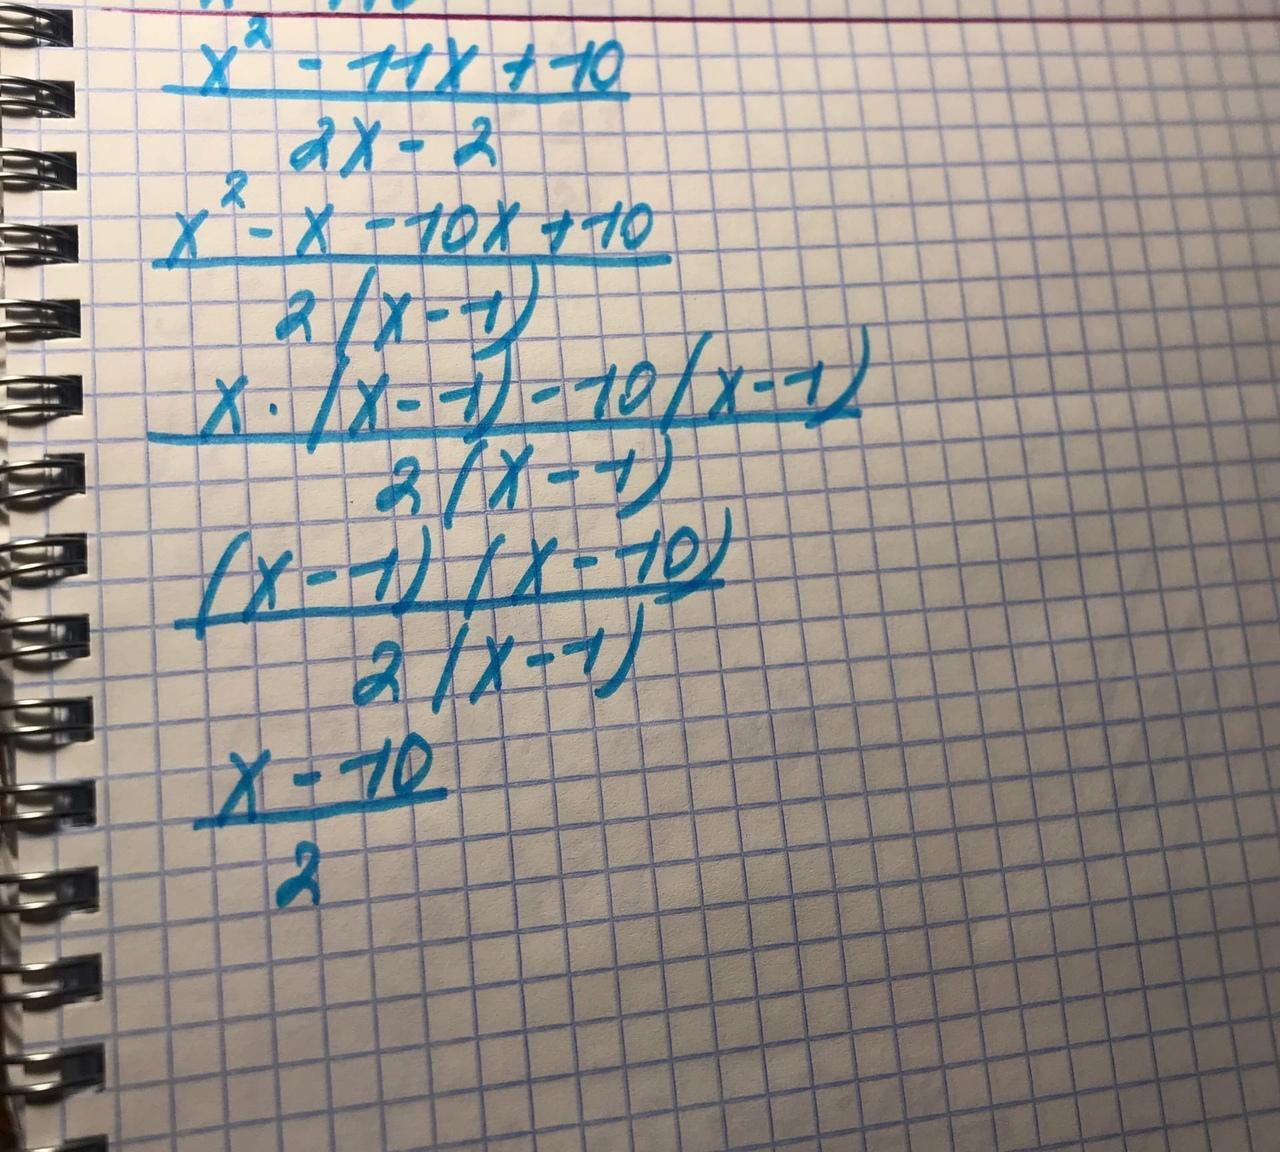 x² - 11x + 10
2x - 2
x² - x - 10x + 10
2(x - 1)
x · (x - 1) - 10(x - 1)
2(x - 1)
(x - 1)(x - 10)
2(x - 1)
x - 10
2